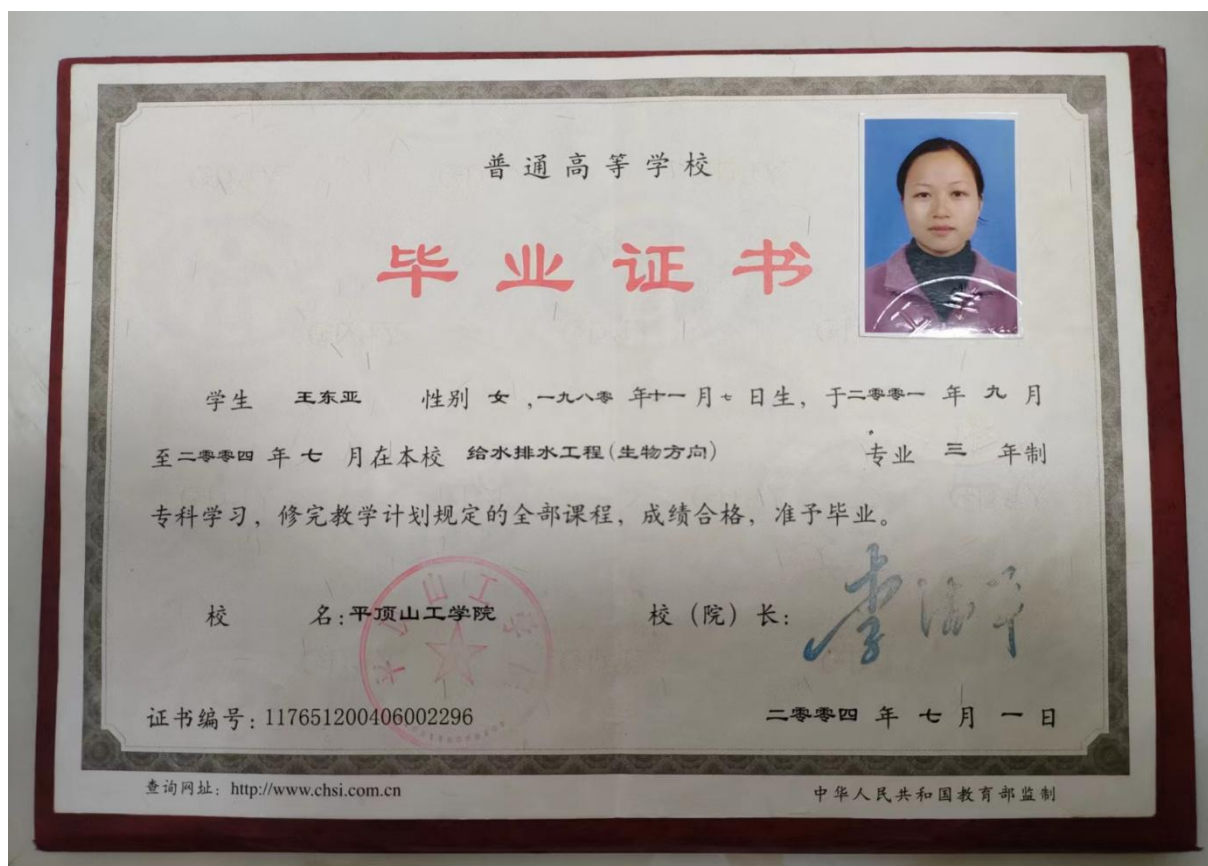 普通高等学校
毕业证书
学生 王东亚 性别 女 ,一九八零 年十一月七日生, 于二零零一 年 九 月
至二零零四 年 七 月在本校 给水排水工程(生物方向) 专业 三 年制
专科学习, 修完教学计划规定的全部课程, 成绩合格, 准予毕业。
校 名:平顶山工学院 校 (院) 长:
证书编号: 117651200406002296 二零零四 年 七 月 一 日
查询网址: http://www.chsi.com.cn 中华人民共和国教育部监制